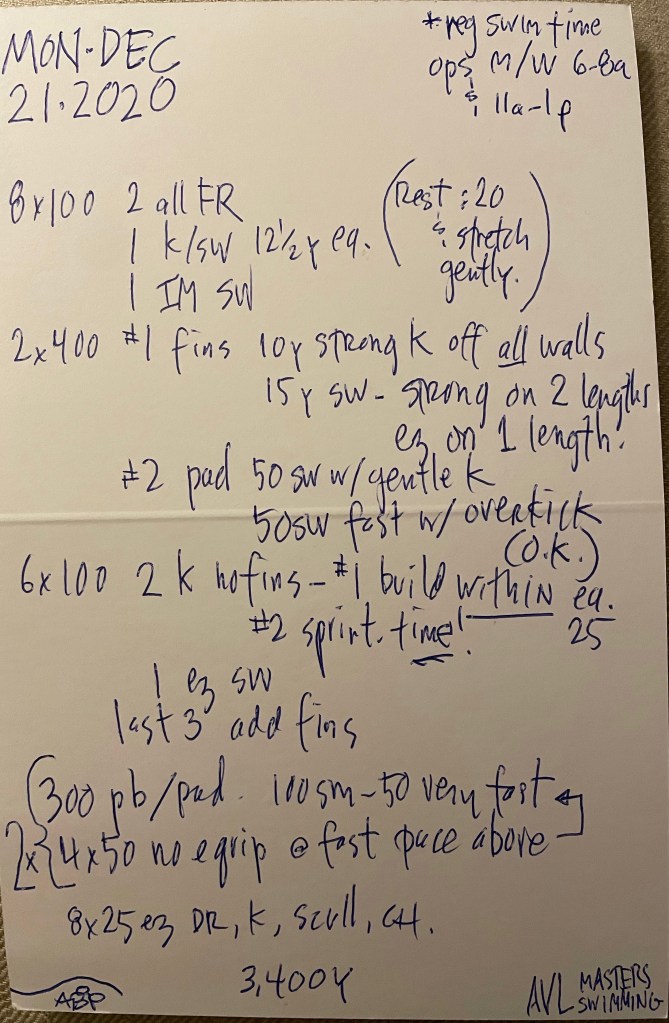 MON·DEC
21·2020
*reg swim time
ops M/W 6-8a
& 11a-1p
8x100 2 all FR
1 k/sw 12½y ea.
1 IM SW
(Rest :20
& stretch
gently.)
2x400 #1 fins 10y strong K off all walls
15y SW - strong on 2 lengths
ez on 1 length.
#2 pad 50 sw w/gentle k
50sw fast w/ overkick
(O.K.)
6x100 2 k no fins - #1 build within ea.
25
#2 sprint. time!
1 ez sw
last 3 add fins
2x{ 300 pb/pad. 100sm-50 very fast
4x50 no equip @ fast pace above
8x25 ez DR, K, Scull, CH.
3,400Y
ABP
AVL MASTERS
SWIMMING